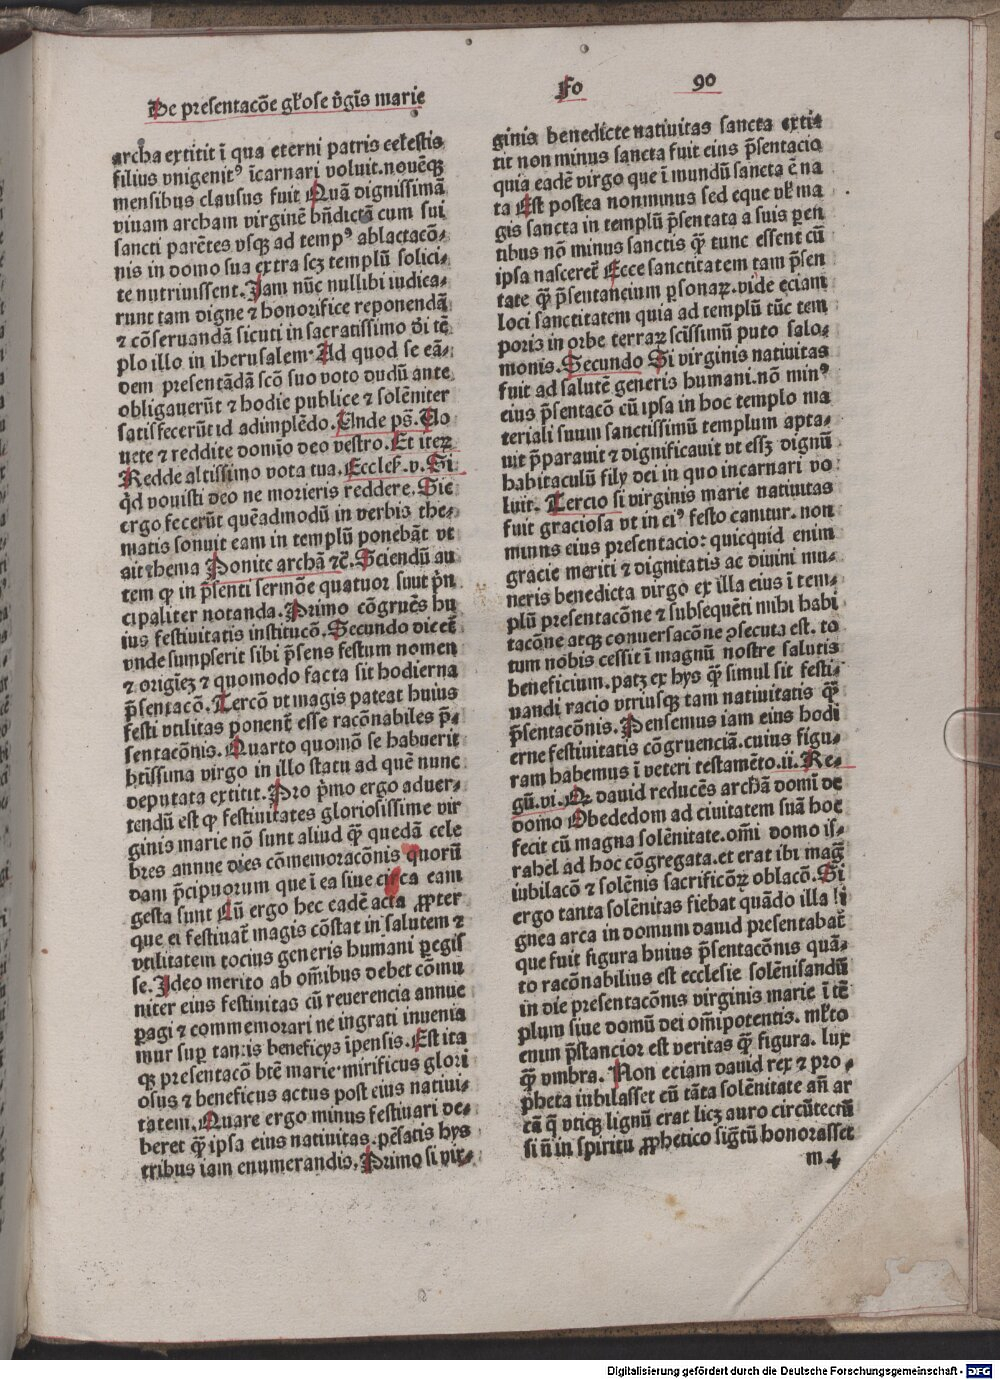 De presentacõe gl'ose v̾gĩs marie
Fo 90
archa extitit ĩ qua eterni patris celestis
filius vnigenitꝰ ĩcarnari voluit. nouẽqꝫ
mensibus clausus fuit Quã dignissimã
viuam archam virginẽ bñdictã cum sui
sancti parẽtes vsqꝫ ad tempꝰ ablactacõ-
nis in domo sua extra scꝫ templũ solici-
te nutriuissent. Jam nũc nullibi iudica-
runt tam digne ⁊ honorifice reponendã
⁊ cõseruandã sicuti in sacratissimo dei tẽ
plo illo in iherusalem. Ad quod se eã-
dem presentãdã scõ suo voto dudũ ante
obligauerũt ⁊ hodie publice ⁊ solẽniter
satisfecerũt id adimplẽdo. Unde ps̃. Uo
uete ⁊ reddite domio deo vestro. Et iteꝝ
Redde altissimo vota tua. Eccles̃. v. Si
q̇d vouisti deo ne morieris reddere. Sic
ergo fecerũt quẽadmodũ in verbis the-
matis sonuit eam in templũ ponebãt vt
ait thema Ponite archã ⁊c̃. Sciendũ au
tem qꝫ in p̃senti sermõe quatuor sunt p̃n
cipaliter notanda. Primo cõgruẽs hu
ius festiuitatis institucõ. Secundo dicet̃
vnde sumpserit sibi p̃sens festum nomen
⁊ origiẽꝫ ⁊ quomodo facta sit hodierna
p̃sentacõ. Tercõ vt magis pateat huius
festi vtilitas ponent̃ esse racõnabiles p̃-
sentacõnis. Quarto quomõ se habuerit
btissima virgo in illo statu ad quẽ nunc
deputata extitit. Pro p̃mo ergo aduer-
tendũ est qꝫ festiuitates gloriosissime vir
ginis marie nõ sunt aliud q̃ꝫ quedã cele
bres annue dies cõmemoracõnis quorũ
dam p̃cipuorum que ĩ ea siue circa eam
gesta sunt Cũ ergo hec eadẽ acta ꝓpter
que ei festiuat̃ magis cõstat in salutem ⁊
vtilitatem tocius generis humani ꝑegis
se. Jdeo merito ab om̃ibus debet cõmu
niter eius festiuitas cũ reuerencia annue
ꝑagi ⁊ commemorari ne ingrati inuenia
mur suꝑ tantis beneficys ipensis. Est ita
qꝫ presentacõ btẽ marie mirificus glori
osus ⁊ beneficus actus post eius natiui-
tatem. Quare ergo minus festiuari de-
beret q̃ꝫ ipsa eius natiuitas. pẽsatis hys
tribus iam enumerandis. Primo si vir-
ginis benedicte natiuitas sancta exti-
tit non minus sancta fuit eius p̃sentacio
quia eadẽ virgo que ĩ mundũ sancta ẽ na
ta Est postea nonminus sed eque vl' ma
gis sancta in templũ p̃sentata a suis ꝑen
tibus nõ minus sanctis q̃ꝫ tunc essent cũ
ipsa nasceret̃ Ecce sanctitatem tam p̃sen
tate q̃ꝫ p̃sentancium ꝑsonaꝝ. vide eciam
loci sanctitatem quia ad templũ tũc tem
poris in orbe terraꝝ scissimũ puto salo-
monis. Secundo Si virginis natiuitas
fuit ad salutẽ generis humani. nõ minꝰ
eius p̃sentacõ cũ ipsa in hoc templo ma
teriali suum sanctissimũ templum apta-
uit p̃parauit ⁊ dignificauit vt essꝫ dignũ
habitaculũ fily dei in quo incarnari vo
luit. Tercio si virginis marie natiuitas
fuit graciosa vt in eiꝰ festo canitur. non
minus eius presentacio: quicquid enim
gracie meriti ⁊ dignitatis ac diuini mu-
neris benedicta virgo ex illa eius ĩ tem-
plũ presentacõne ⁊ subsequẽti inibi habi
tacõne atqꝫ conuersacõne ꝯsecuta est. to
tum nobis cessit ĩ magnũ nostre salutis
beneficium. patꝫ ex hys q̃ꝫ simul sit festi-
uandi racio vtriusqꝫ tam natiuitatis q̃ꝫ
p̃sentacõnis. Pensemus iam eius hodi
erne festiuitatis cõgruenciã. cuius figu-
ram habemus ĩ veteri testamẽto. ii. Re-
gũ. vi. Qꝛ dauid reducẽs archã domĩ de
domo Obededom ad ciuitatem suã hoc
fecit cũ magna solẽnitate. om̃i domo is-
rahel ad hoc cõgregata. et erat ibi mag̃
iubilacõ ⁊ solẽnis sacrificõꝝ oblacõ. Si
ergo tanta solẽnitas fiebat quãdo illa li
gnea arca in domum dauid presentabat̃
que fuit figura huius p̃sentacõnis quã-
to racõnabilius est ecclesie solẽnisandũ
in die presentacõnis virginis marie ĩ tẽ
plum siue domũ dei om̃ipotentis. ml'to
enim p̃stancior est veritas q̃ꝫ figura. lux
q̃ꝫ vmbra. Non eciam dauid rex ⁊ pro-
pheta iubilasset cũ tãta solẽnitate añ ar
cã q̃ vtiqꝫ lignũ erat licꝫ auro circũtectũ
si ñ in spiritu ꝓphetico sig̃tũ honorasset
m 4
Digitalisierung gefördert durch die Deutsche Forschungsgemeinschaft - DFG